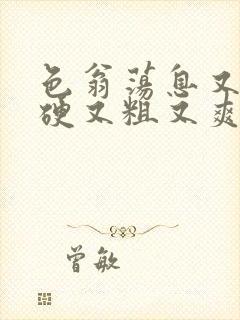 色翁荡息又
硬又粗又爽
曾敏